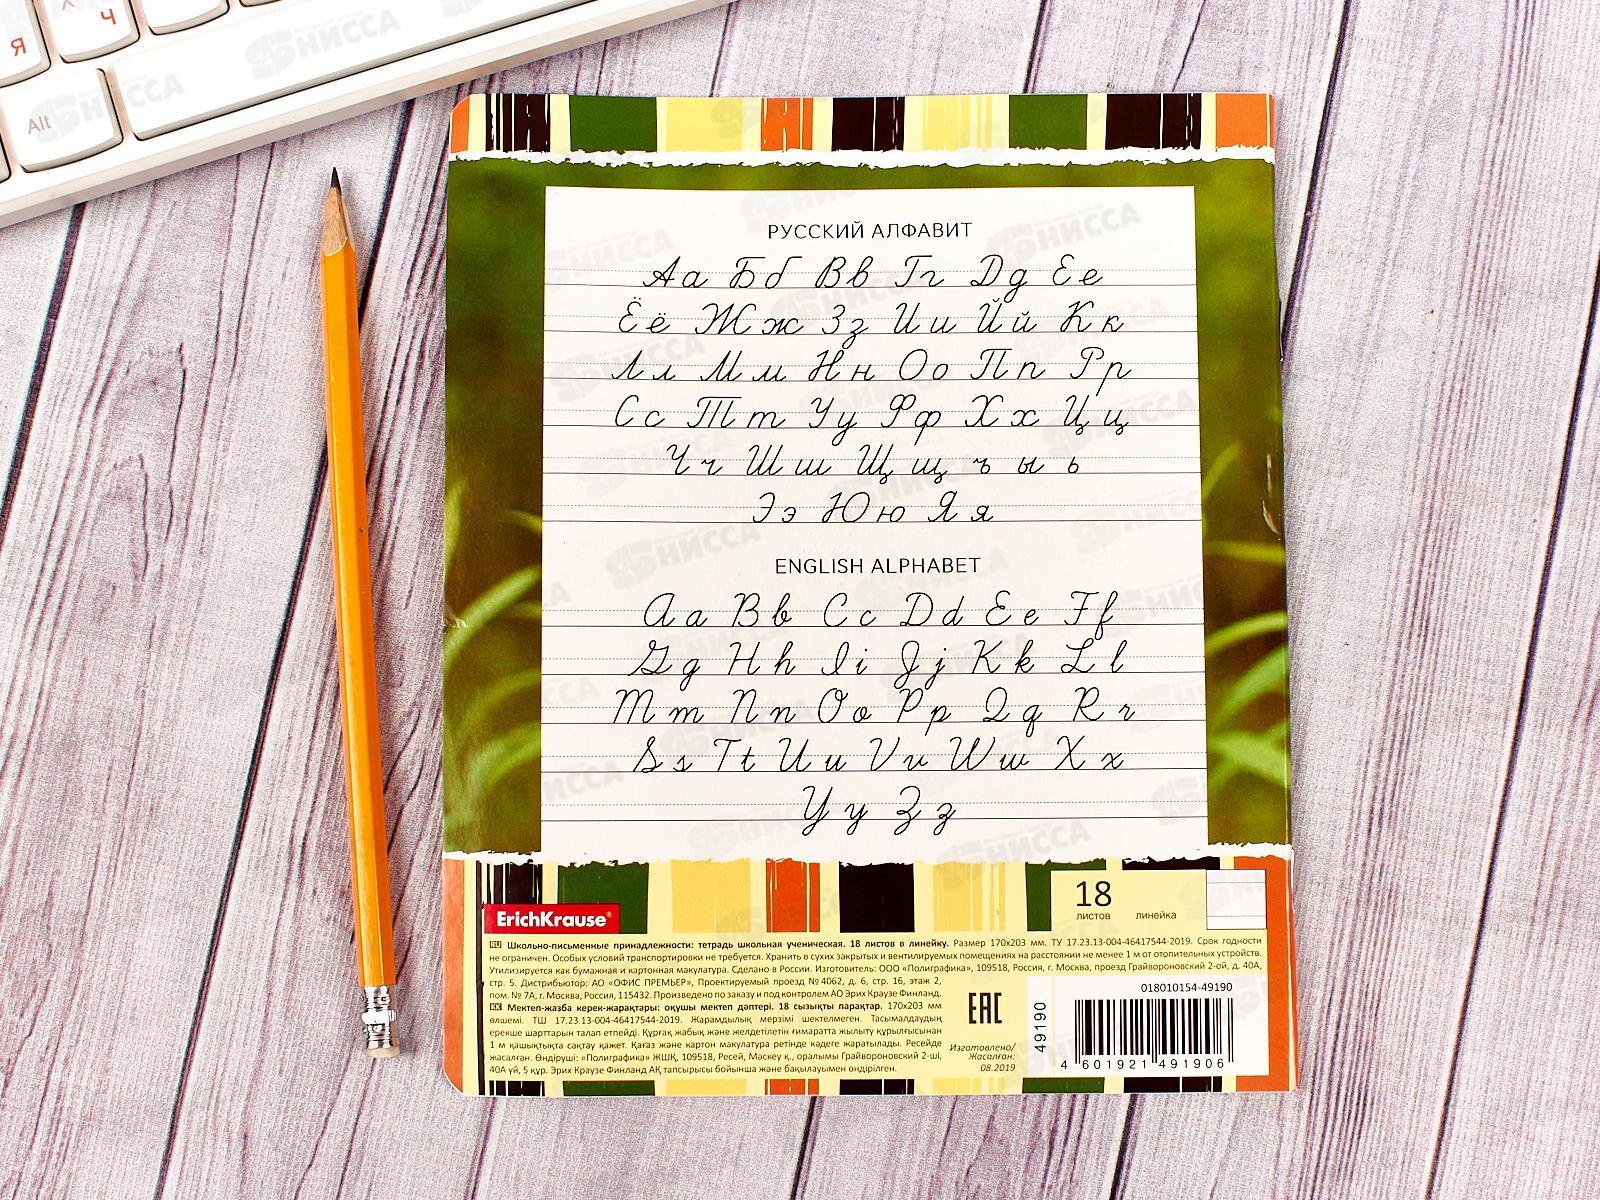 Я
Ч
Alt
РУССКИЙ АЛФАВИТ
Аа Бб Вв Гг Дд Ее
Ёё Жж Зз Ии Йй Кк
Лл Мм Нн Оо Пп Рр
Сс Тт Уу Фф Хх Цц
Чч Шш Щщ ъ ы ь
Ээ Юю Яя
ENGLISH ALPHABET
Aa Bb Cc Dd Ee Ff
Gg Hh Ii Jj Kk Ll
Mm Nn Oo Pp Qq Rr
Ss Tt Uu Vv Ww Xx
Yy Zz
18
листов линейка
ErichKrause®
RU Школьно-письменные принадлежности: тетрадь школьная ученическая. 18 листов в линейку. Размер 170х203 мм. ТУ 17.23.13-004-46417544-2019. Срок годности
не ограничен. Особых условий транспортировки не требуется. Хранить в сухих закрытых и вентилируемых помещениях на расстоянии не менее 1 м от отопительных устройств.
Утилизируется как бумажная и картонная макулатура. Сделано в России. Изготовитель: ООО «Полиграфика», 109518, Россия, г. Москва, проезд Грайвороновский 2-ой, д. 40А,
стр. 5. Дистрибьютор: АО «ОФИС ПРЕМЬЕР», Проектируемый проезд №4062, д. 6, стр. 16, этаж 2,
пом. №7А, г. Москва, Россия, 115432. Произведено по заказу и под контролем АО Эрих Краузе Финланд.
KK Мектеп-жазба керек-жарақтары: оқушы мектеп дәптері. 18 сызықты парақтар. 170х203 мм
өлшемі. ТШ 17.23.13-004-46417544-2019. Жарамдылық мерзімі шектелмеген. Тасымалдаудың
ерекше шарттарын талап етпейді. Құрғақ жабық және желдетілетін ғимаратта жылыту құрылғысынан
1 м қашықтықта сақтау қажет. Қағаз және картон макулатура ретінде кәдеге жаратылады. Ресейде
жасалған. Өндіруші: «Полиграфика» ЖШҚ, 109518, Ресей, Мәскеу қ., оралымы Грайвороновский 2-ші,
40А үй, 5 құр. Эрих Краузе Финланд АҚ тапсырысы бойынша және бақылауымен өндірілген.
EAC
Изготовлено/
Жасалған:
08.2019
49190
018010154-49190
4 601921 491906
НИССА